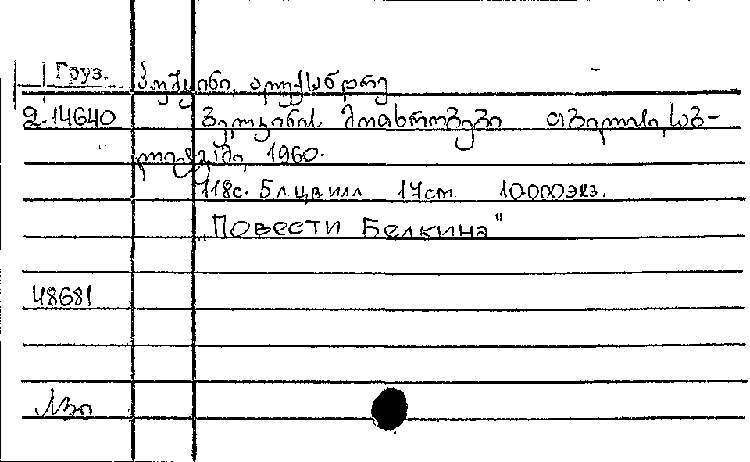 Груз. პუშკინი, ალექსანდრე
2.14640 ბელკინის მოთხრობები თბილისი, საბ-
ლიტგამი, 1960.
118с. 5 л.цв.илл 17см 10000экз.
„Повести Белкина"
48681